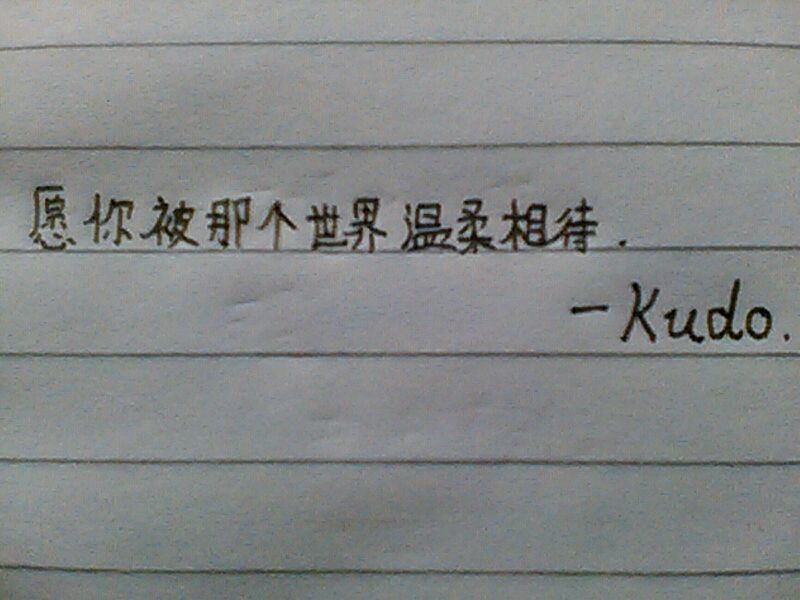 愿你被那个世界温柔相待.
-Kudo.